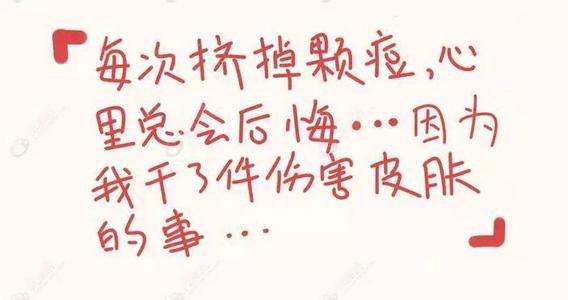 每次挤掉颗痘,心
里总会后悔···因为
我干了件伤害皮肤
的事···